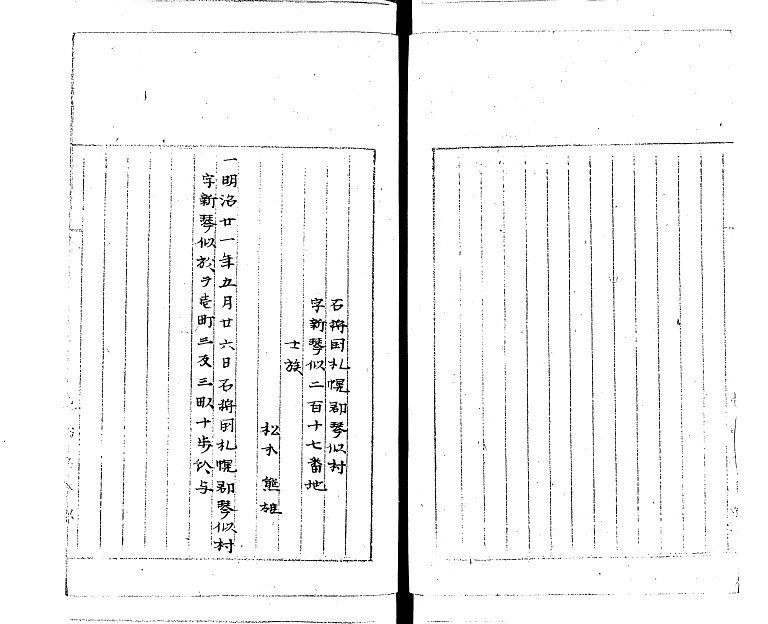 石狩国札幌郡琴似村
字新琴似二百十七番地
士族
松木熊雄
一明治廿一年五月廿六日石狩国札幌郡琴似村
字新琴似於ヲ壱町三反三畝十歩給与